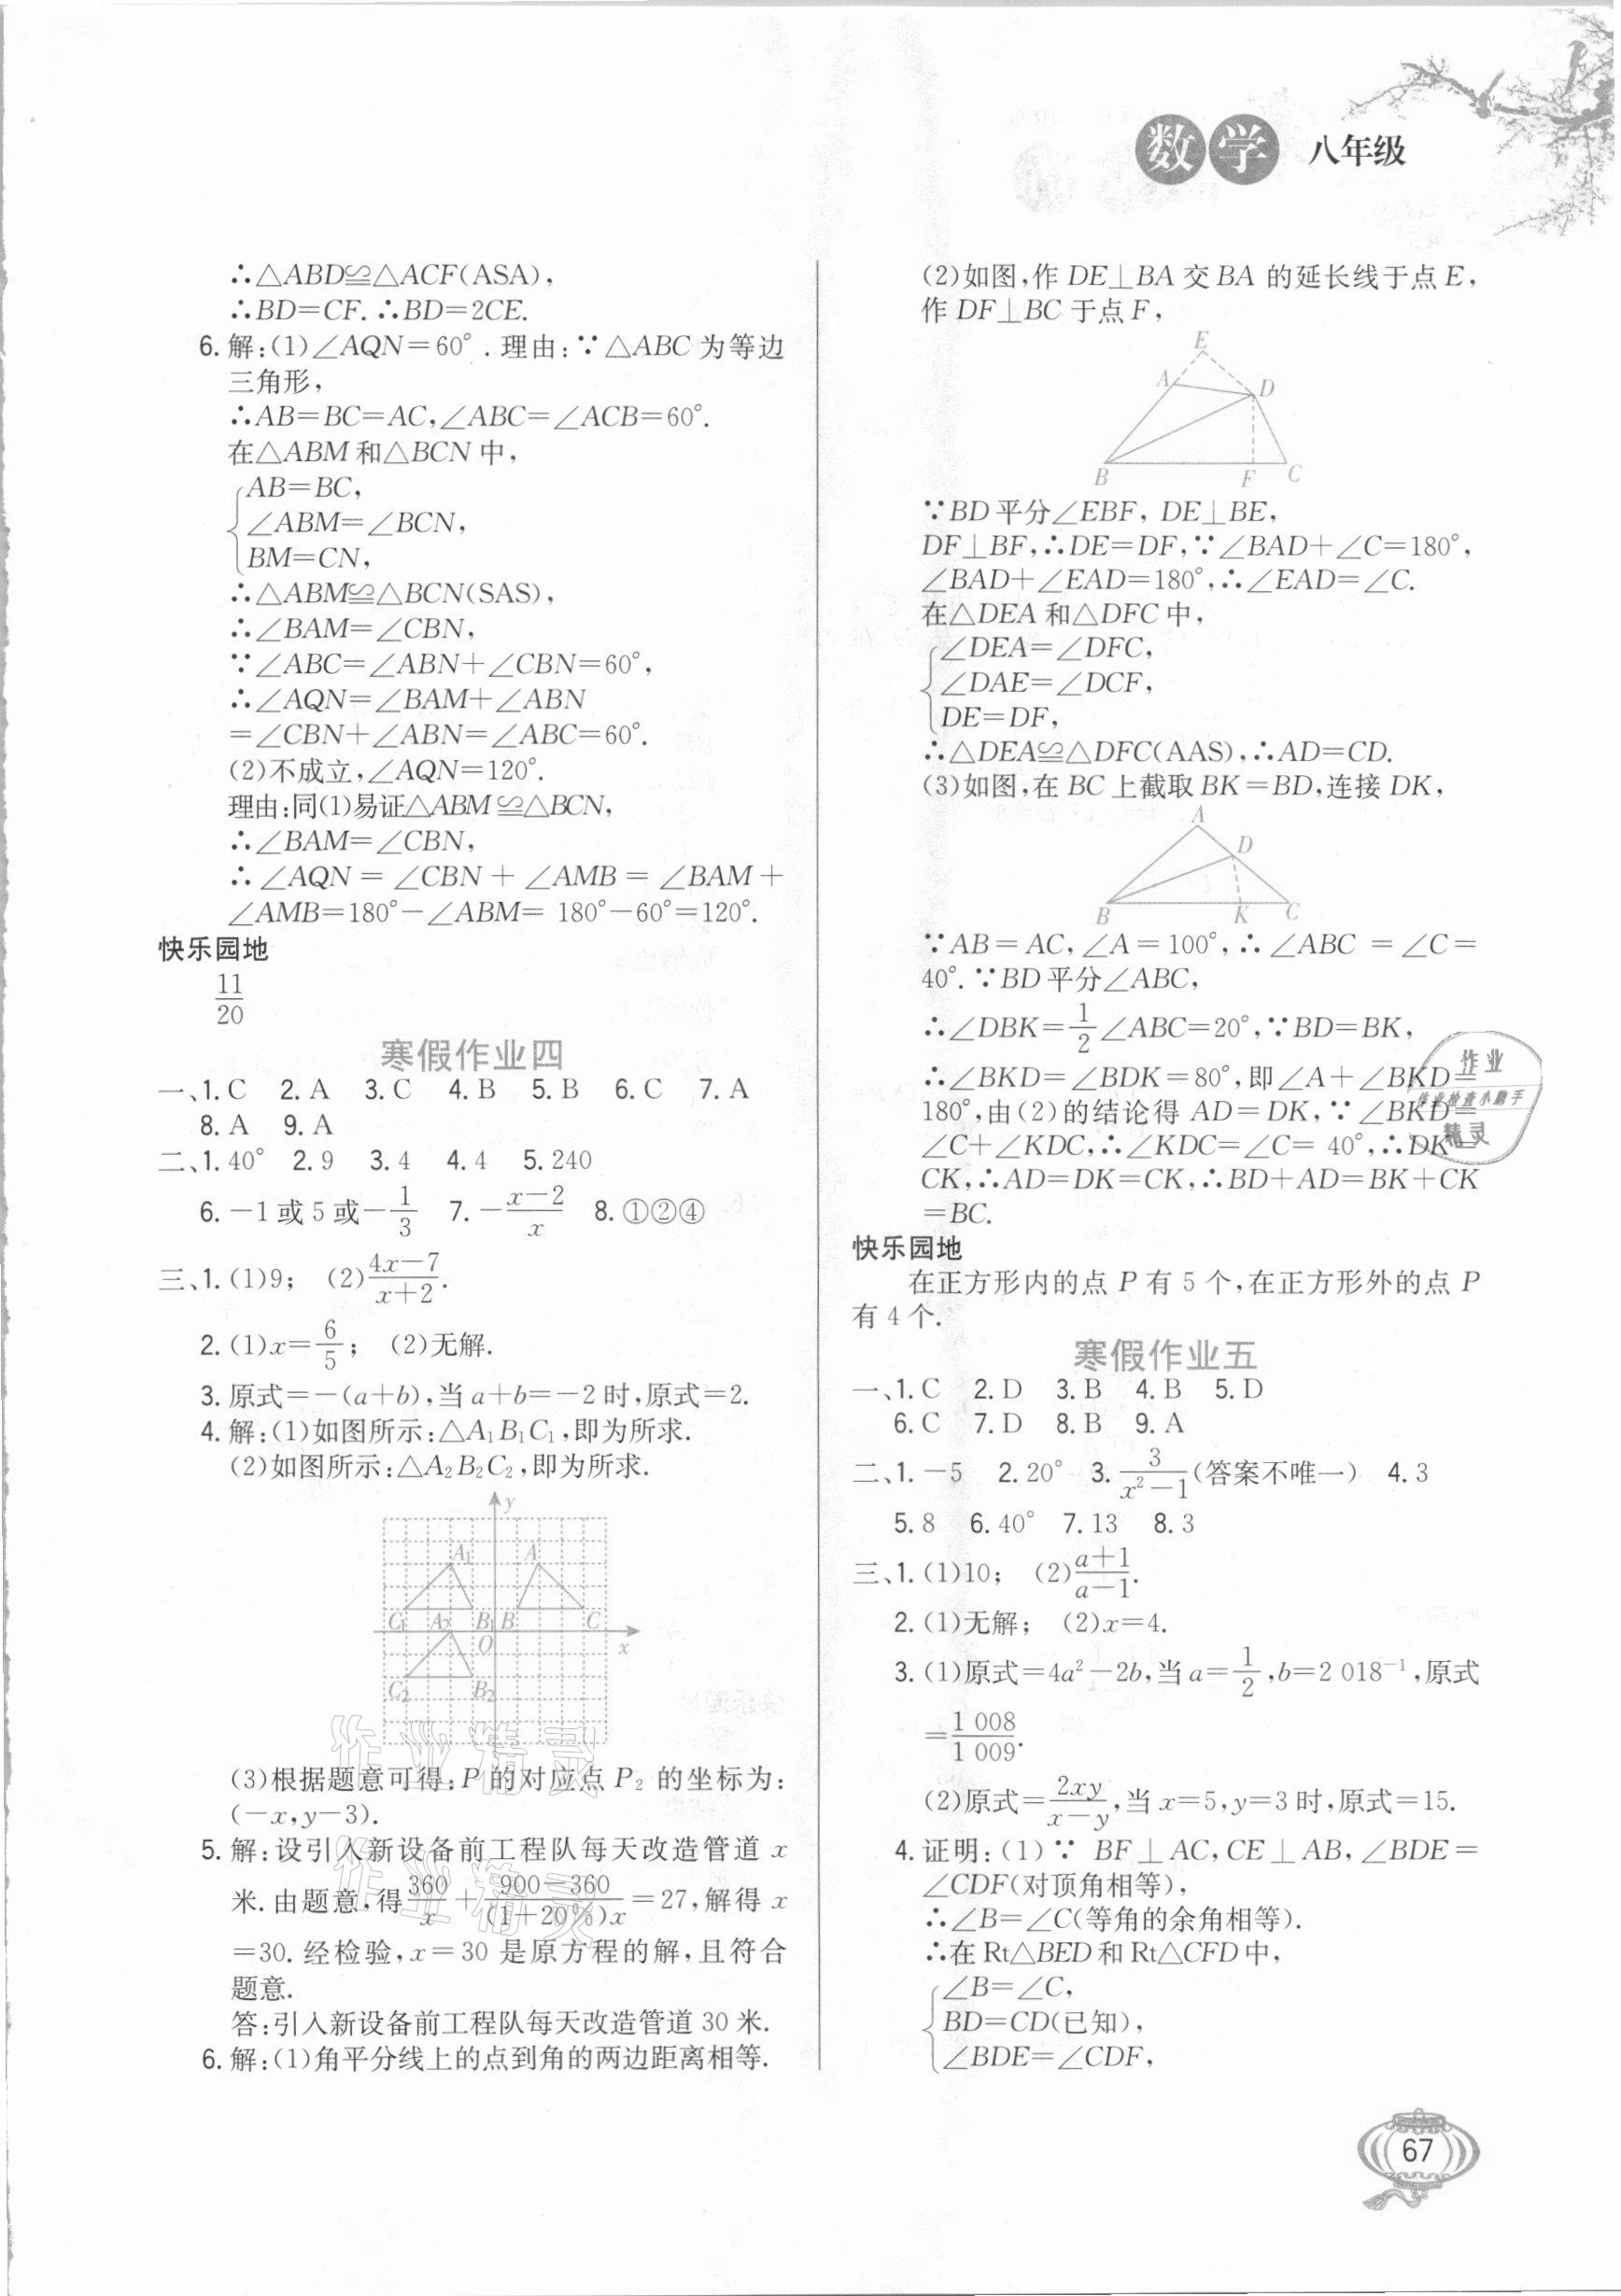 数学 八年级
∴△ABD≌△ACF(ASA),
∴BD=CF.∴BD=2CE.
6.解:(1)∠AQN=60°.理由:∵△ABC为等边
三角形,
∴AB=BC=AC,∠ABC=∠ACB=60°.
在△ABM和△BCN中,
AB=BC,
∠ABM=∠BCN,
BM=CN,
∴△ABM≌△BCN(SAS),
∴∠BAM=∠CBN,
∵∠ABC=∠ABN+∠CBN=60°,
∴∠AQN=∠BAM+∠ABN
=∠CBN+∠ABN=∠ABC=60°.
(2)不成立,∠AQN=120°.
理由:同(1)易证△ABM≌△BCN,
∴∠BAM=∠CBN,
∴∠AQN=∠CBN+∠AMB=∠BAM+
∠AMB=180°-∠ABM=180°-60°=120°.
快乐园地
11/20
寒假作业四
一、1.C 2.A 3.C 4.B 5.B 6.C 7.A
8.A 9.A
二、1.40° 2.9 3.4 4.4 5.240
6.-1或5或-1/3 7.-(x-2)/x 8.①②④
三、1.(1)9; (2)(4x-7)/(x+2).
2.(1)x=6/5; (2)无解.
3.原式=-(a+b),当a+b=-2时,原式=2.
4.解:(1)如图所示:△A₁B₁C₁,即为所求.
(2)如图所示:△A₂B₂C₂,即为所求.
y
A₁ A
C₁ A₂ B₁ B C
O x
C₂ B₂
(3)根据题意可得:P的对应点P₂的坐标为:
(-x,y-3).
5.解:设引入新设备前工程队每天改造管道x
米.由题意,得360/x+(900-360)/((1+20%)x)=27,解得x
=30.经检验,x=30是原方程的解,且符合
题意.
答:引入新设备前工程队每天改造管道30米.
6.解:(1)角平分线上的点到角的两边距离相等.
(2)如图,作DE⊥BA交BA的延长线于点E,
作DF⊥BC于点F,
E
A D
B F C
∵BD平分∠EBF,DE⊥BE,
DF⊥BF,∴DE=DF,∵∠BAD+∠C=180°,
∠BAD+∠EAD=180°,∴∠EAD=∠C.
在△DEA和△DFC中,
∠DEA=∠DFC,
∠DAE=∠DCF,
DE=DF,
∴△DEA≌△DFC(AAS),∴AD=CD.
(3)如图,在BC上截取BK=BD,连接DK,
A
D
B K C
∵AB=AC,∠A=100°,∴∠ABC=∠C=
40°.∵BD平分∠ABC,
∴∠DBK=1/2∠ABC=20°,∵BD=BK,
∴∠BKD=∠BDK=80°,即∠A+∠BKD=
180°,由(2)的结论得AD=DK,∵∠BKD=
∠C+∠KDC,∴∠KDC=∠C=40°,∴DK=
CK,∴AD=DK=CK,∴BD+AD=BK+CK
=BC.
快乐园地
在正方形内的点P有5个,在正方形外的点P
有4个.
寒假作业五
一、1.C 2.D 3.B 4.B 5.D
6.C 7.D 8.B 9.A
二、1.-5 2.20° 3.3/(x²-1)(答案不唯一) 4.3
5.8 6.40° 7.13 8.3
三、1.(1)10; (2)(a+1)/(a-1).
2.(1)无解; (2)x=4.
3.(1)原式=4a²-2b,当a=1/2,b=2 018⁻¹,原式
=1 008/1 009.
(2)原式=2xy/(x-y),当x=5,y=3时,原式=15.
4.证明:(1)∵BF⊥AC,CE⊥AB,∠BDE=
∠CDF(对顶角相等),
∴∠B=∠C(等角的余角相等).
∴在Rt△BED和Rt△CFD中,
∠B=∠C,
BD=CD(已知),
∠BDE=∠CDF,
67
作业
作业检查小助手
精灵
作业精灵
作业精灵